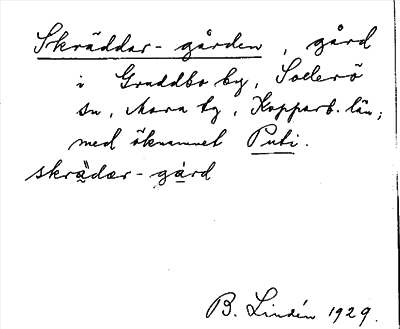 Skräddar-gården, gård
i Gruddbo by, Sollerö
sn, Mora tg, Kopparb. län;
med öknamnet Puti.
skrädær-gård
B. Lindén 1929.